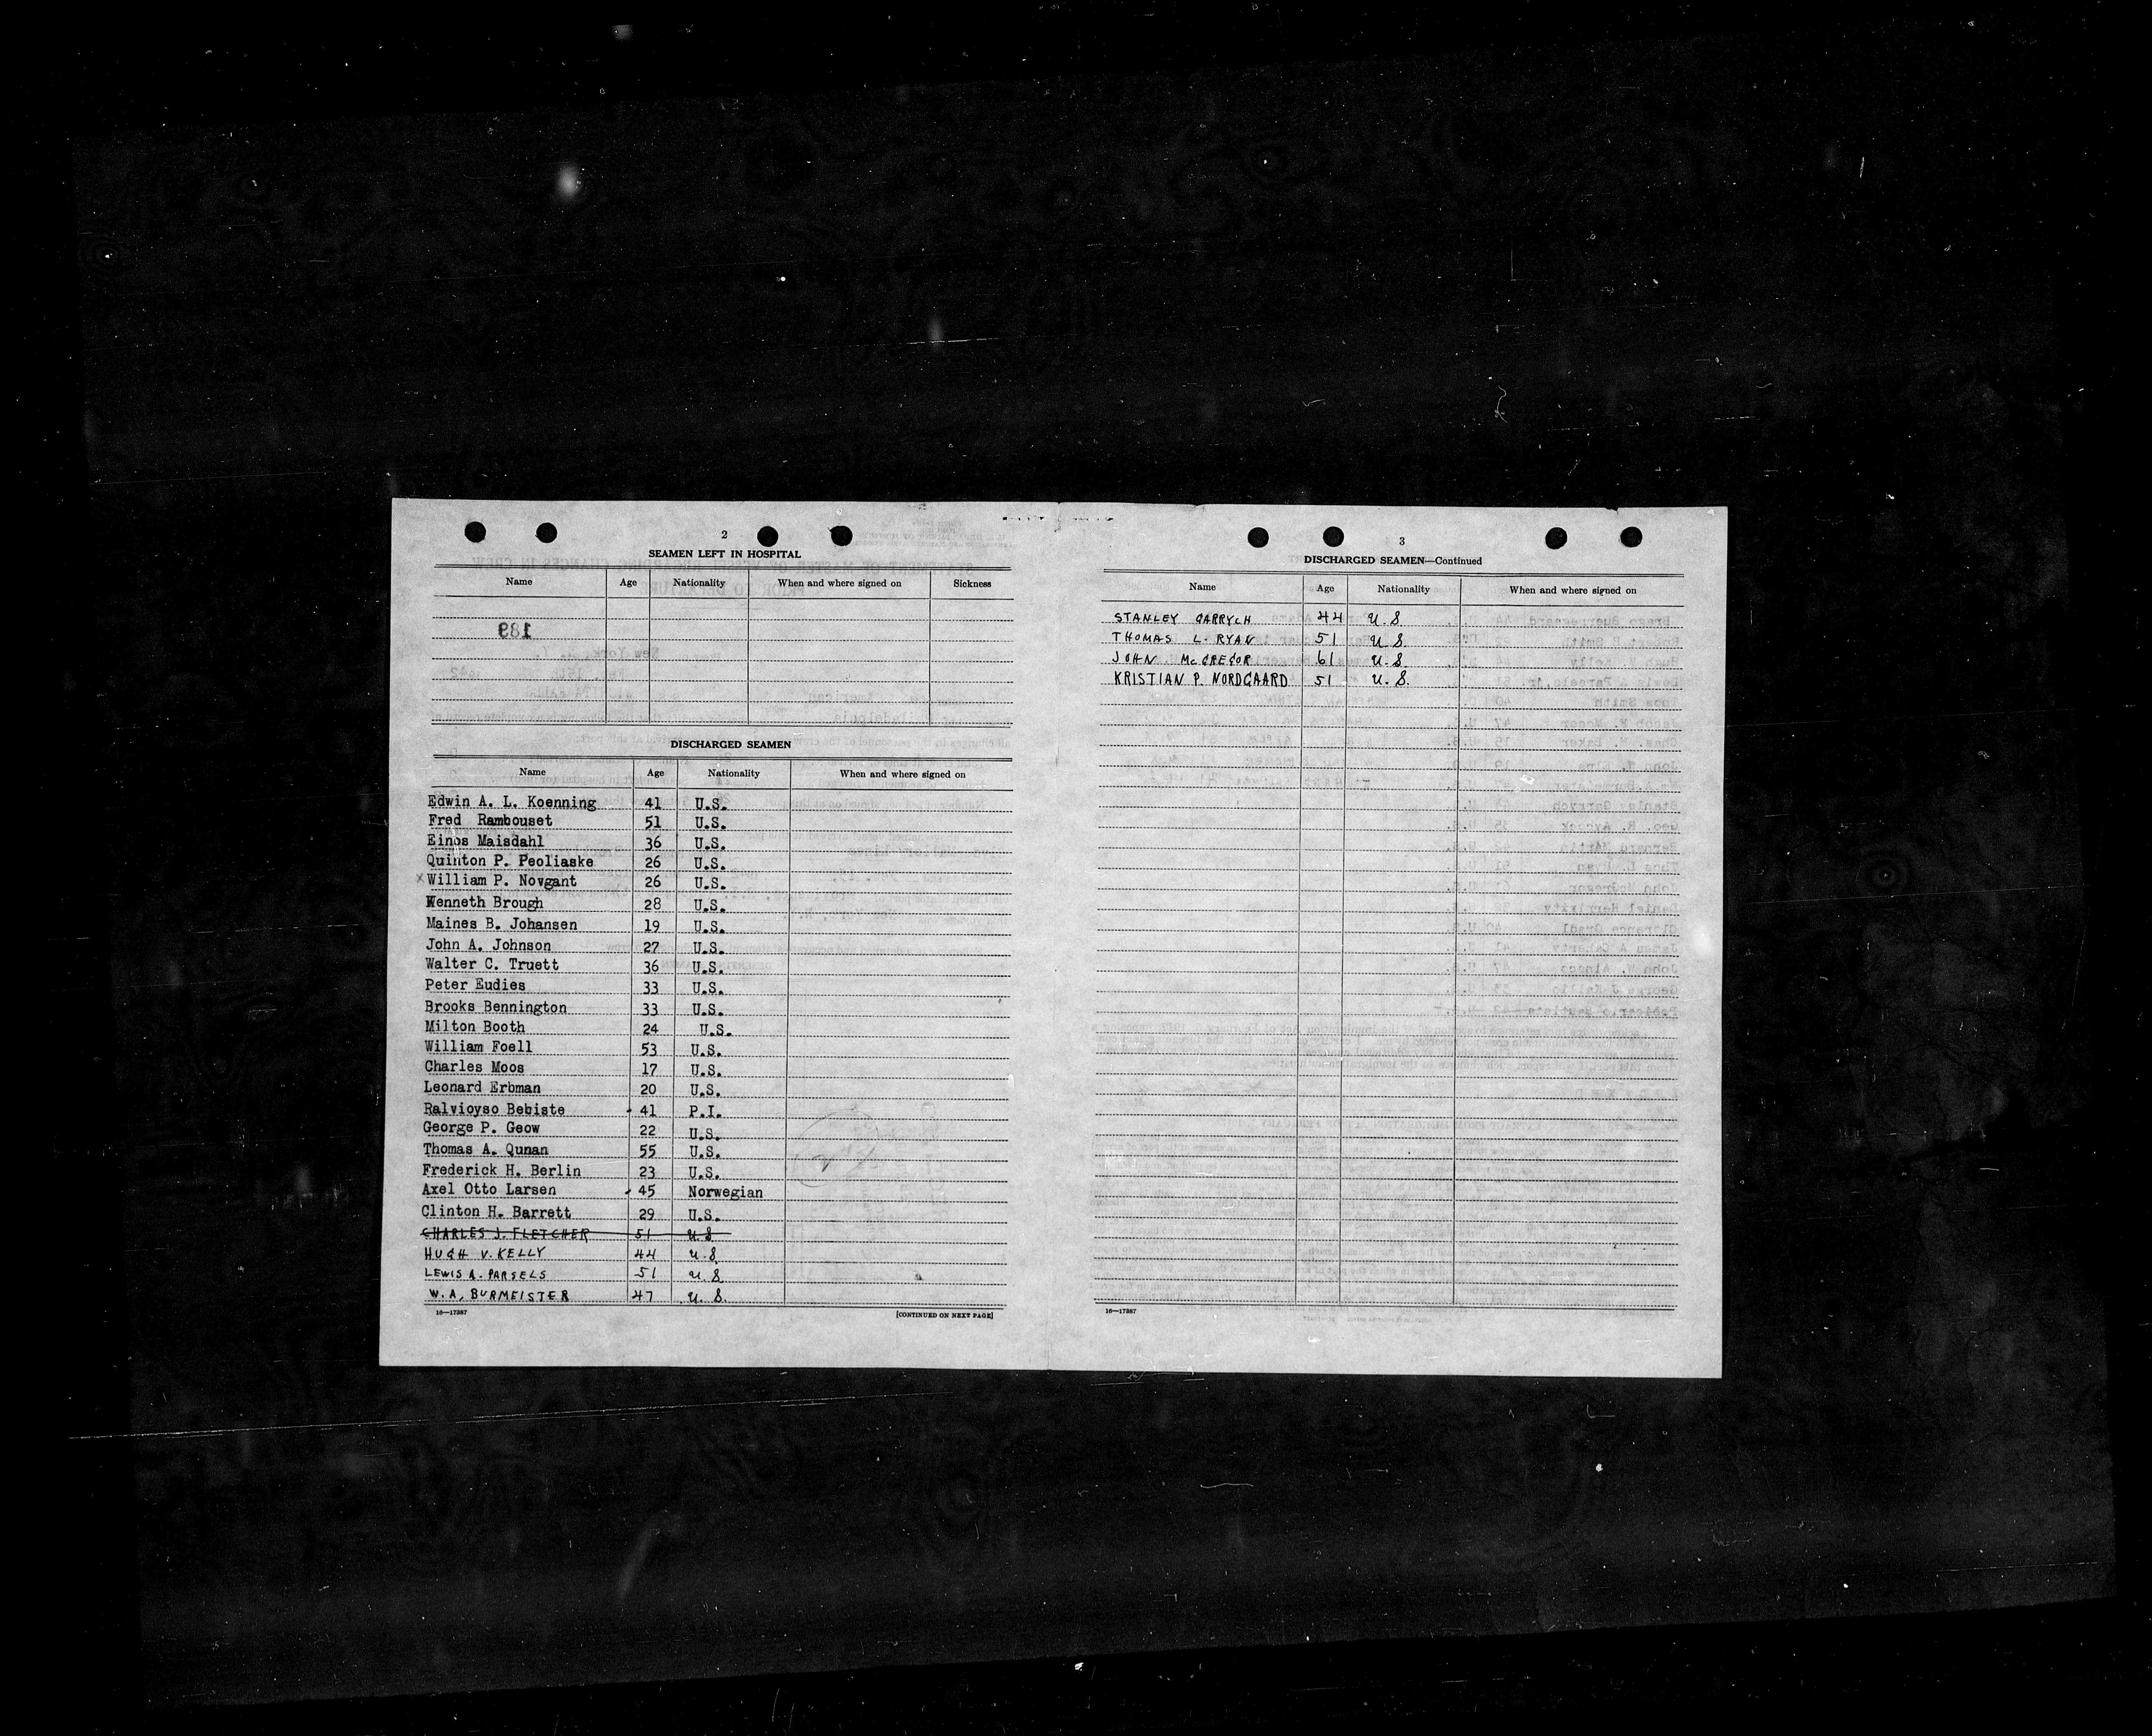 2
SEAMEN LEFT IN HOSPITAL
Name Age Nationality When and where signed on Sickness
189
DISCHARGED SEAMEN
Name Age Nationality When and where signed on
Edwin A. L. Koenning 41 U.S.
Fred Rambouset 51 U.S.
Einos Maisdahl 36 U.S.
Quinton P. Peoliaske 26 U.S.
x William P. Novgant 26 U.S.
Kenneth Brough 28 U.S.
Maines B. Johansen 19 U.S.
John A. Johnson 27 U.S.
Walter C. Truett 36 U.S.
Peter Eudies 33 U.S.
Brooks Bennington 33 U.S.
Milton Booth 24 U.S.
William Foell 53 U.S.
Charles Moos 17 U.S.
Leonard Erbman 20 U.S.
Ralvioyso Bebiste 41 P.I.
George P. Geow 22 U.S.
Thomas A. Qunan 55 U.S.
Frederick H. Berlin 23 U.S.
Axel Otto Larsen 45 Norwegian
Clinton H. Barrett 29 U.S.
CHARLES J. FLETCHER 51 U.S
HUGH V. KELLY 44 U.S.
LEWIS A. PARSELS 51 U.S
W.A. BURMEISTER 47 U.S.
16—17387 [CONTINUED ON NEXT PAGE]
3
DISCHARGED SEAMEN—Continued
Name Age Nationality When and where signed on
STANLEY GARRYCH 44 U.S.
THOMAS L. RYAN 51 U.S.
JOHN McGREGOR 61 U.S
KRISTIAN P. NORDGAARD 51 U.S.
16—17387